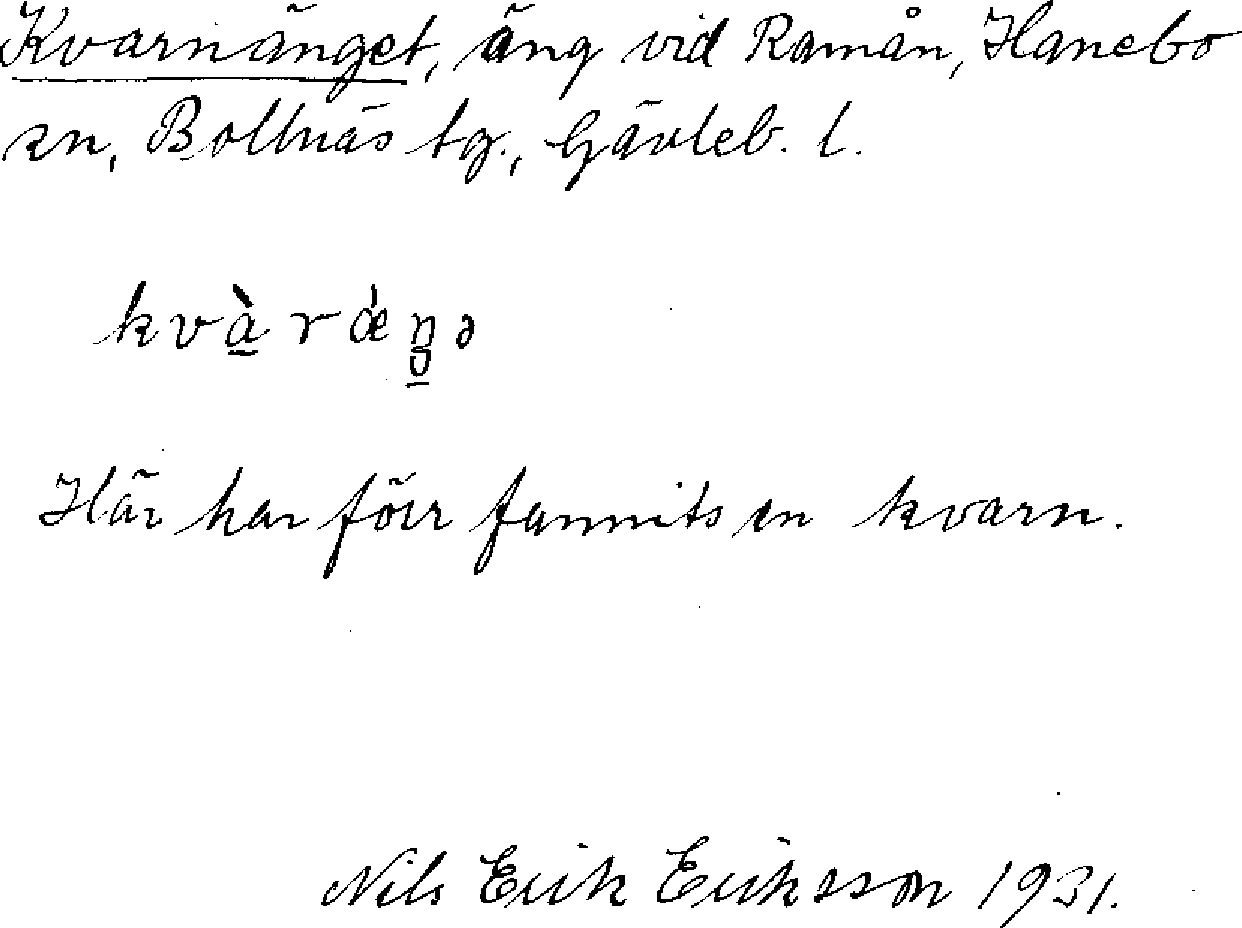 Kvarnänget, äng vid Ramån, Hanebo
sn, Bollnäs tg., Gävleb. l.
kvàrǽŋə
Här har förr funnits en kvarn.
Nils Erik Eriksson 1931.